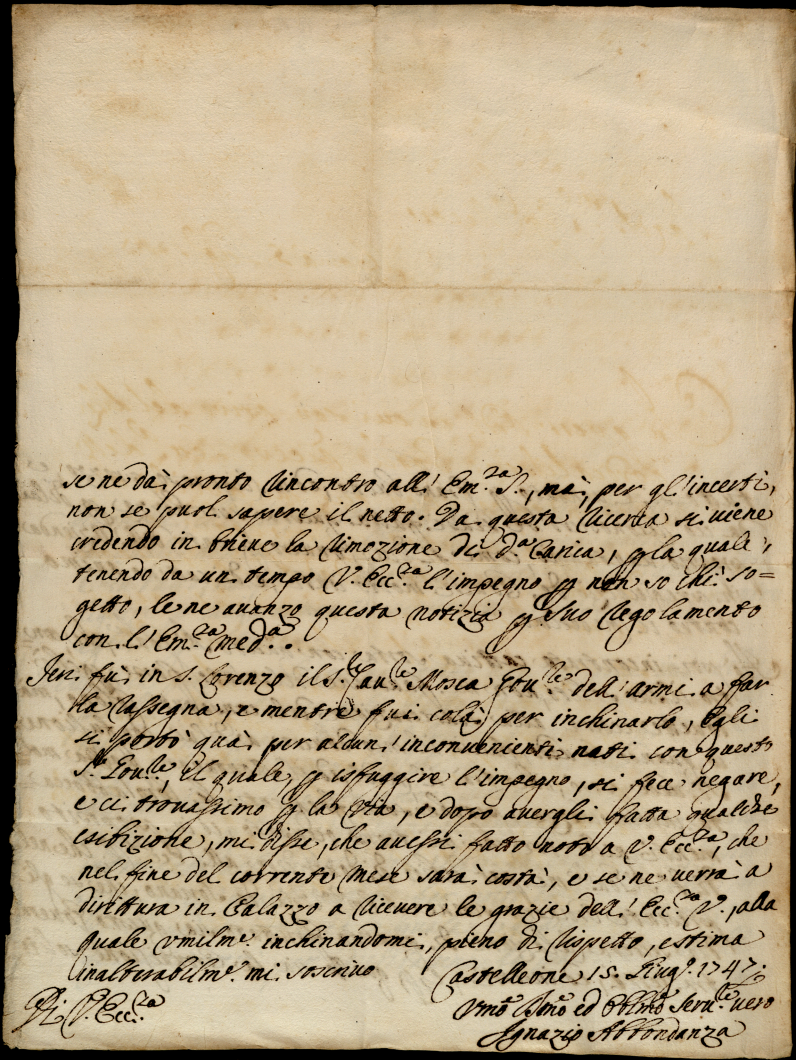 se ne dà pronto rincontro all' Em.za S., mà, per gl' incerti,
non se puol sapere il netto. Da questa ricerca si viene
credendo in breve la rimozione di d.a Carica, p la quale,
tenendo da un tempo V. Ecc.za l'impegno p non so chi so=
getto, le ne avanzo questa notizia p suo regolamento
con l' Em.za med.a.
Jeri fù in S. Lorenzo il S.r Cav.re Mosca Gov.re dell' armi a far
la rassegna, e mentre fui colà per inchinarlo, Egli
si portò quà per alcuni inconvenienti nati con questo
S.r Gov.re, il quale p isfuggire l'impegno, si fece negare,
e ci trovassimo p la via, e dopo avergli fatta qualche
esibizione, mi disse, che avessi fatto noto a V. Ecc.za, che
nel fine del corrente Mese sarà costà, e se ne verrà a
dirittura in Palazzo a ricevere le grazie dell' Ecc.za V., alla
quale umilm.e inchinandomi, pieno di rispetto, e stima
inalterabilm.e mi soscrivo Castelleone 15. Giug.o 1747.
Di V. Ecc.za
Umo Dmo ed Obbmo Serv.re vero
Ignazio Abbondanza